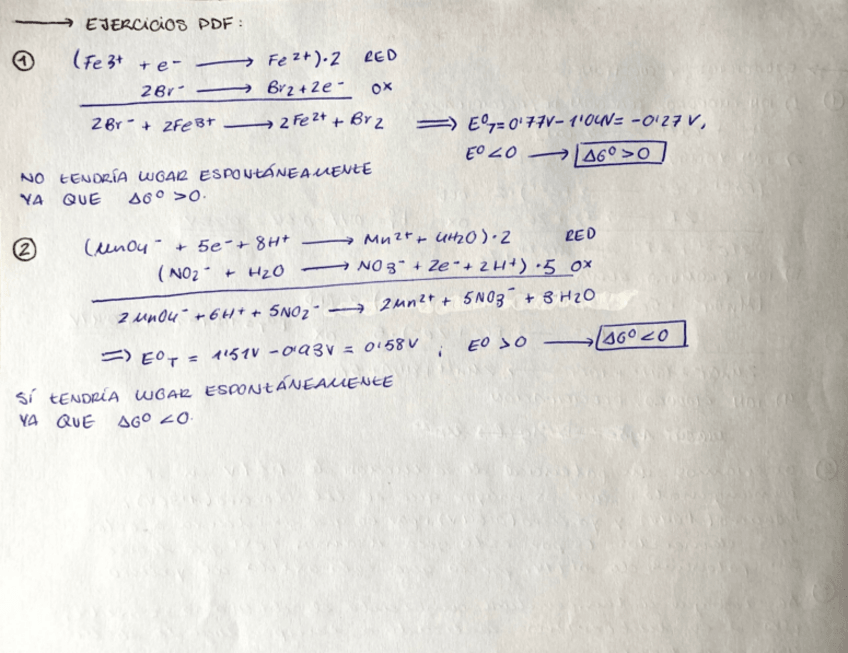 → EJERCICIOS PDF:
① (Fe3+ + e- → Fe2+)·2 RED
2Br- → Br2 + 2e- OX
2Br- + 2Fe3+ → 2Fe2+ + Br2 ⇒ E0T = 0'77V - 1'04V = -0'27 V,
E0 < 0 → ΔG0 > 0
NO TENDRÍA LUGAR ESPONTÁNEAMENTE
YA QUE ΔG0 > 0.
② (MnO4- + 5e- + 8H+ → Mn2+ + 4H2O)·2 RED
(NO2- + H2O → NO3- + 2e- + 2H+)·5 OX
2MnO4- + 6H+ + 5NO2- → 2Mn2+ + 5NO3- + 3H2O
⇒ E0T = 1'51V - 0'93V = 0'58V ; E0 > 0 → ΔG0 < 0
SÍ TENDRÍA LUGAR ESPONTÁNEAMENTE
YA QUE ΔG0 < 0.